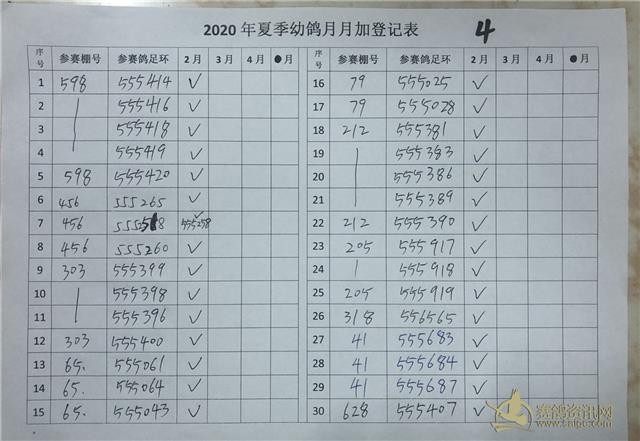 2020 年夏季幼鸽月月加登记表 4
序号 参赛棚号 参赛鸽足环 2 月 3 月 4 月 ●月 序号 参赛棚号 参赛鸽足环 2 月 3 月 4 月 ●月
1 598 555414 ✓ 16 79 555025 ✓
2 555416 ✓ 17 79 555028 ✓
3 555418 ✓ 18 212 555381 ✓
4 555419 ✓ 19 555383 ✓
5 598 555420 ✓ 20 555386 ✓
6 456 555265 ✓ 21 555389 ✓
7 456 555258 ✓ 22 212 555390 ✓
8 456 555260 ✓ 23 205 555917 ✓
9 303 555399 ✓ 24 555918 ✓
10 555398 ✓ 25 205 555919 ✓
11 555396 ✓ 26 318 556565 ✓
12 303 555400 ✓ 27 41 555683 ✓
13 65. 555061 ✓ 28 41 555684 ✓
14 65. 555064 ✓ 29 41 555687 ✓
15 65. 555043 ✓ 30 628 555407 ✓
赛鸽资讯网
www.saige.com